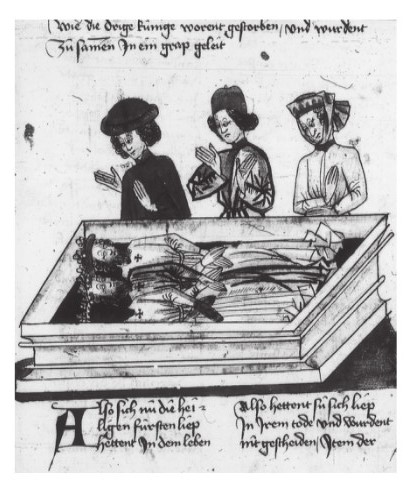 Wie die drige künige worent gestorben / vnd wurdent
Zü samen In ein grap geleit
Also sich nü die hei=
ligen fürsten liep
hettent In dem leben
Also hettent sü sich liep
In Irem tode vnd wurdent
nit gescheiden / Item der